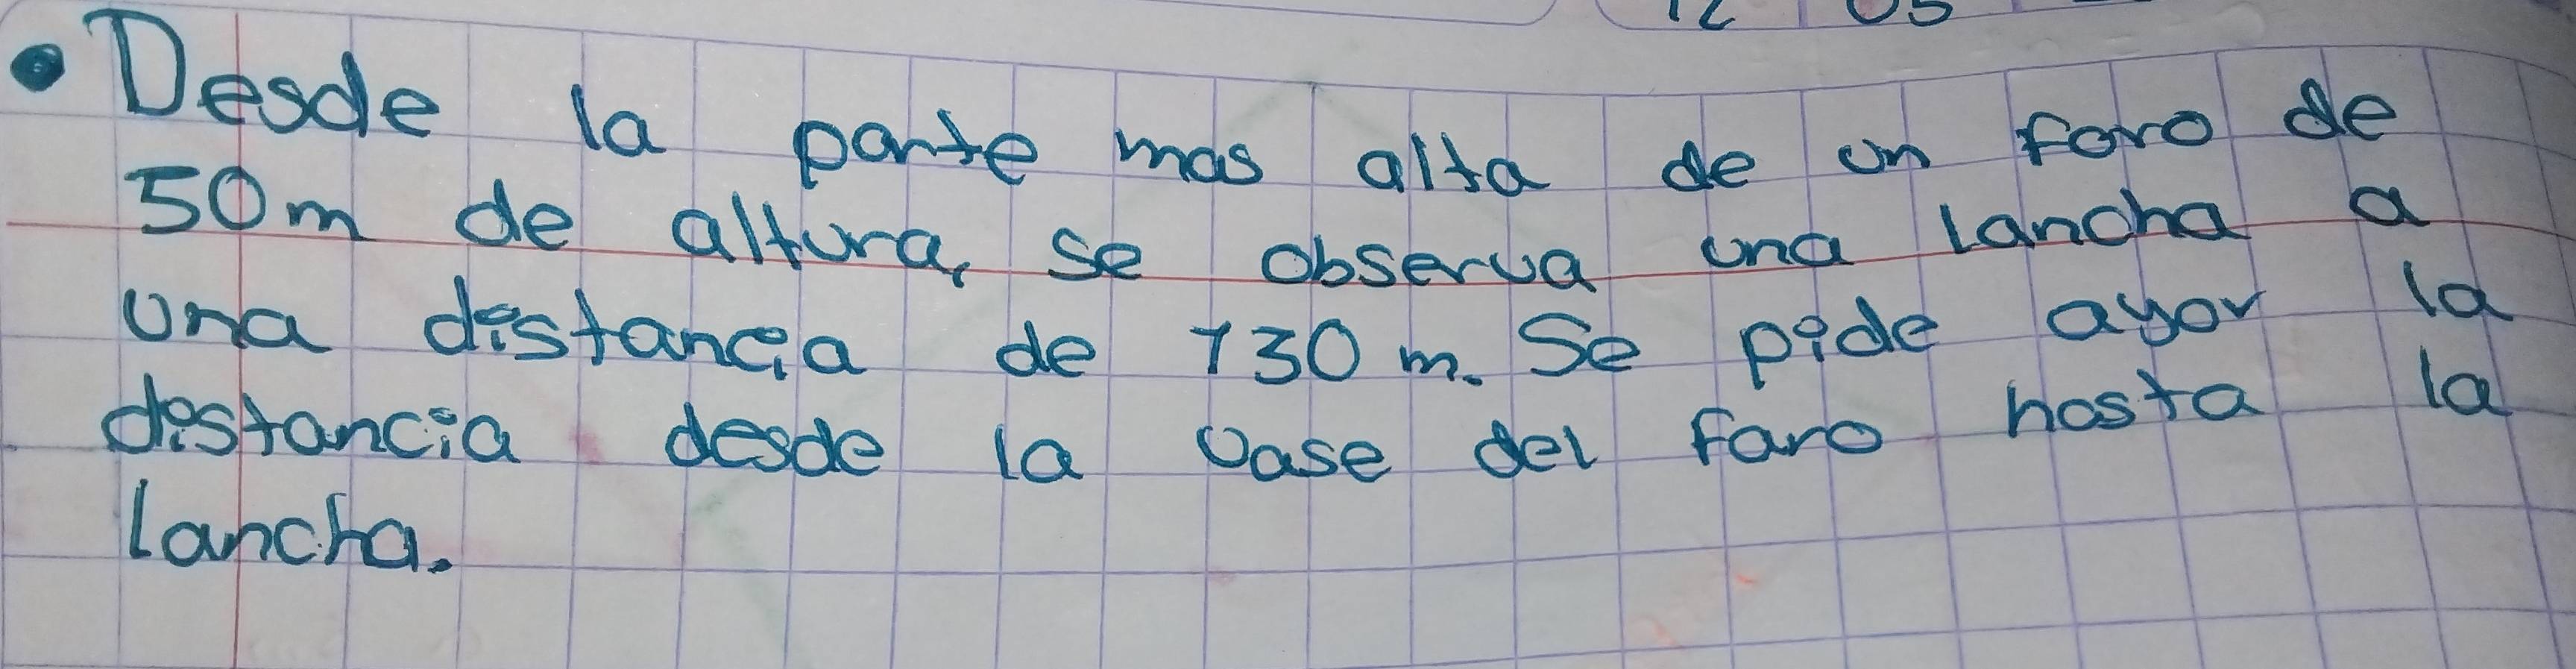 • Desde la parte mas alta de un faro de
50m de altura, se observa una lancha a
una distancia de 130 m. Se pide ayor la
distancia desde la vase del faro hasta la
lancha.